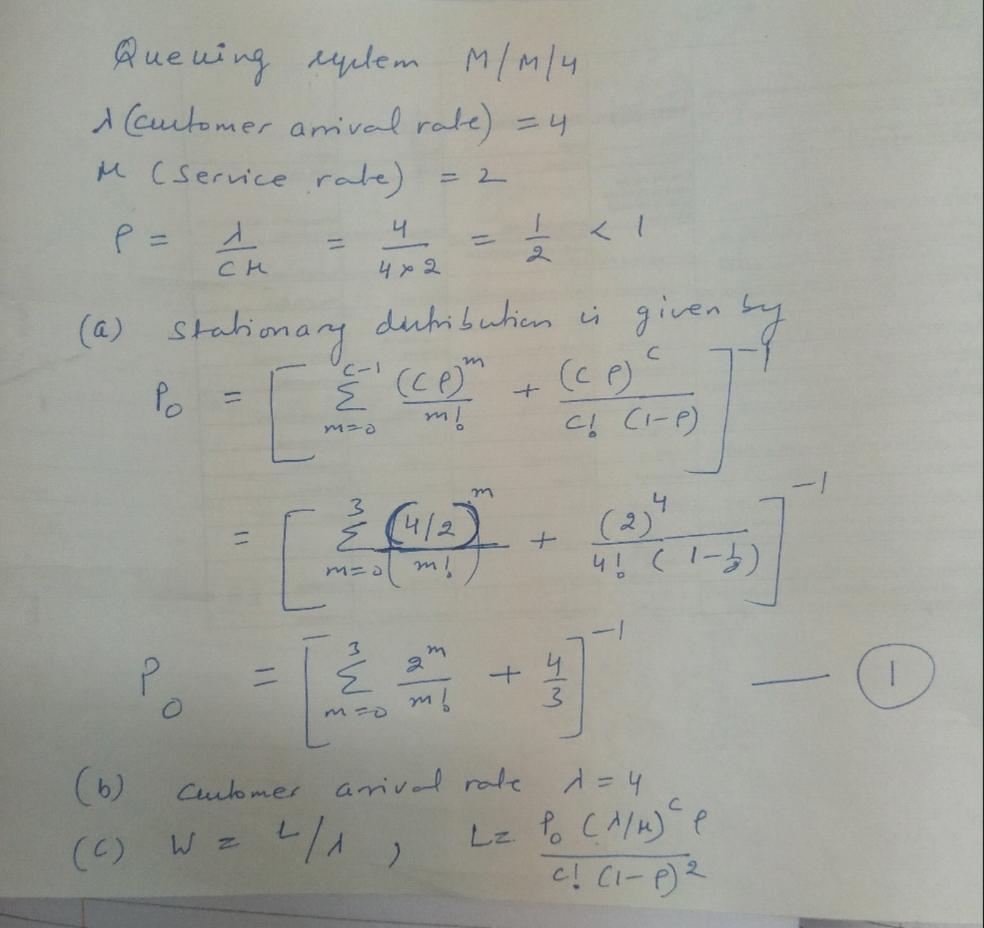 Queuing system M/M/4
λ (customer arrival rate) = 4
μ (service rate) = 2
ρ = λ/cμ = 4/4×2 = 1/2 < 1
(a) stationary distribution is given by
P₀ = [ Σ_{m=0}^{c-1} (cρ)^m / m! + (cρ)^c / c! (1-ρ) ]^{-1}
= [ Σ_{m=0}^{3} (4/2)^m / m! + (2)^4 / 4! (1-1/2) ]^{-1}
P₀ = [ Σ_{m=0}^{3} 2^m / m! + 4/3 ]^{-1} — ①
(b) customer arrival rate λ = 4
(c) W = L/λ , L = P₀ (λ/μ)^c ρ / c! (1-ρ)^2